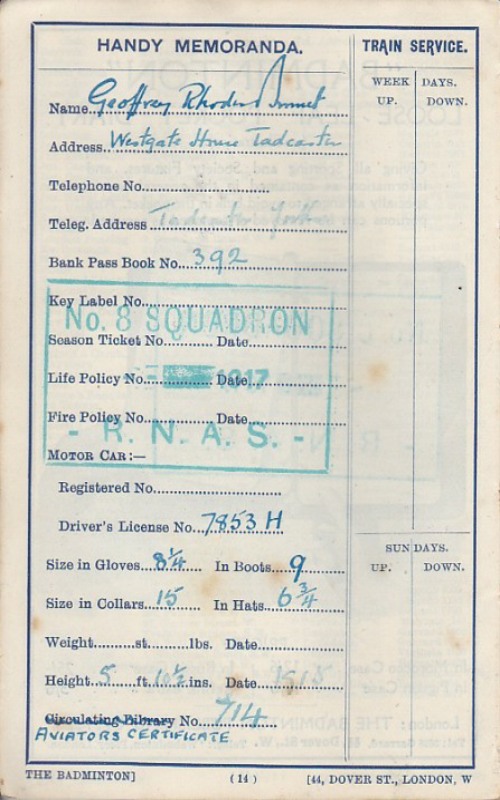 HANDY MEMORANDA.
TRAIN SERVICE.
WEEK DAYS.
UP. DOWN.
Name Geoffrey Rhodes
Address Westgate House Tadcaster
Telephone No.
Teleg. Address Tadcaster York
Bank Pass Book No. 392
Key Label No.
No. 8 SQUADRON
Season Ticket No. Date
Life Policy No. Date
1917
Fire Policy No. Date
- R. N. A. S. -
MOTOR CAR:—
Registered No.
Driver's License No. 7853 H
SUNDAYS.
UP. DOWN.
Size in Gloves 8¼ In Boots 9
Size in Collars 15 In Hats 6¾
Weight st. lbs. Date
Height 5 ft. 10½ ins. Date 1915
Circulating Library No. 714
AVIATORS CERTIFICATE
THE BADMINTON] (14) [44, DOVER ST., LONDON, W